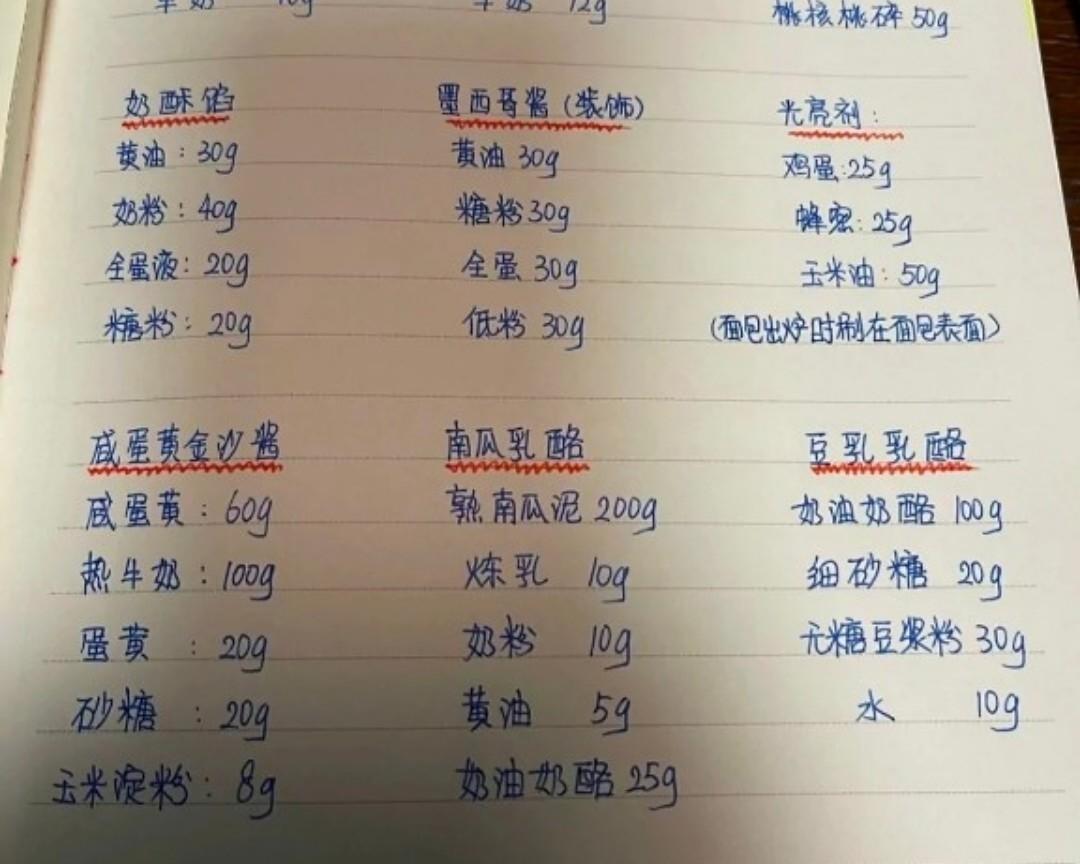 牛奶 12g
核桃碎 50g
奶酥馅
黄油：30g
奶粉：40g
全蛋液：20g
糖粉：20g
墨西哥酱（装饰）
黄油 30g
糖粉 30g
全蛋 30g
低粉 30g
光亮剂：
鸡蛋：25g
蜂蜜：25g
玉米油：50g
（面包出炉时刷在面包表面）
咸蛋黄金沙酱
咸蛋黄：60g
热牛奶：100g
蛋黄：20g
砂糖：20g
玉米淀粉：8g
南瓜乳酪
熟南瓜泥 200g
炼乳 10g
奶粉 10g
黄油 5g
奶油奶酪 25g
豆乳乳酪
奶油奶酪 100g
细砂糖 20g
无糖豆浆粉 30g
水 10g